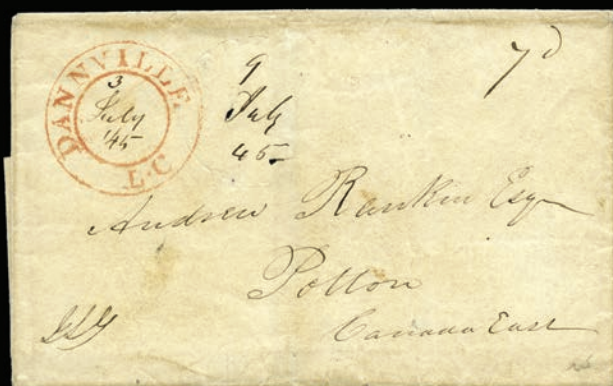 DANNVILLE
L.C
3
July
'45
9
July
45
7d
Andrew Rankin Esqr
Potton
Canada East